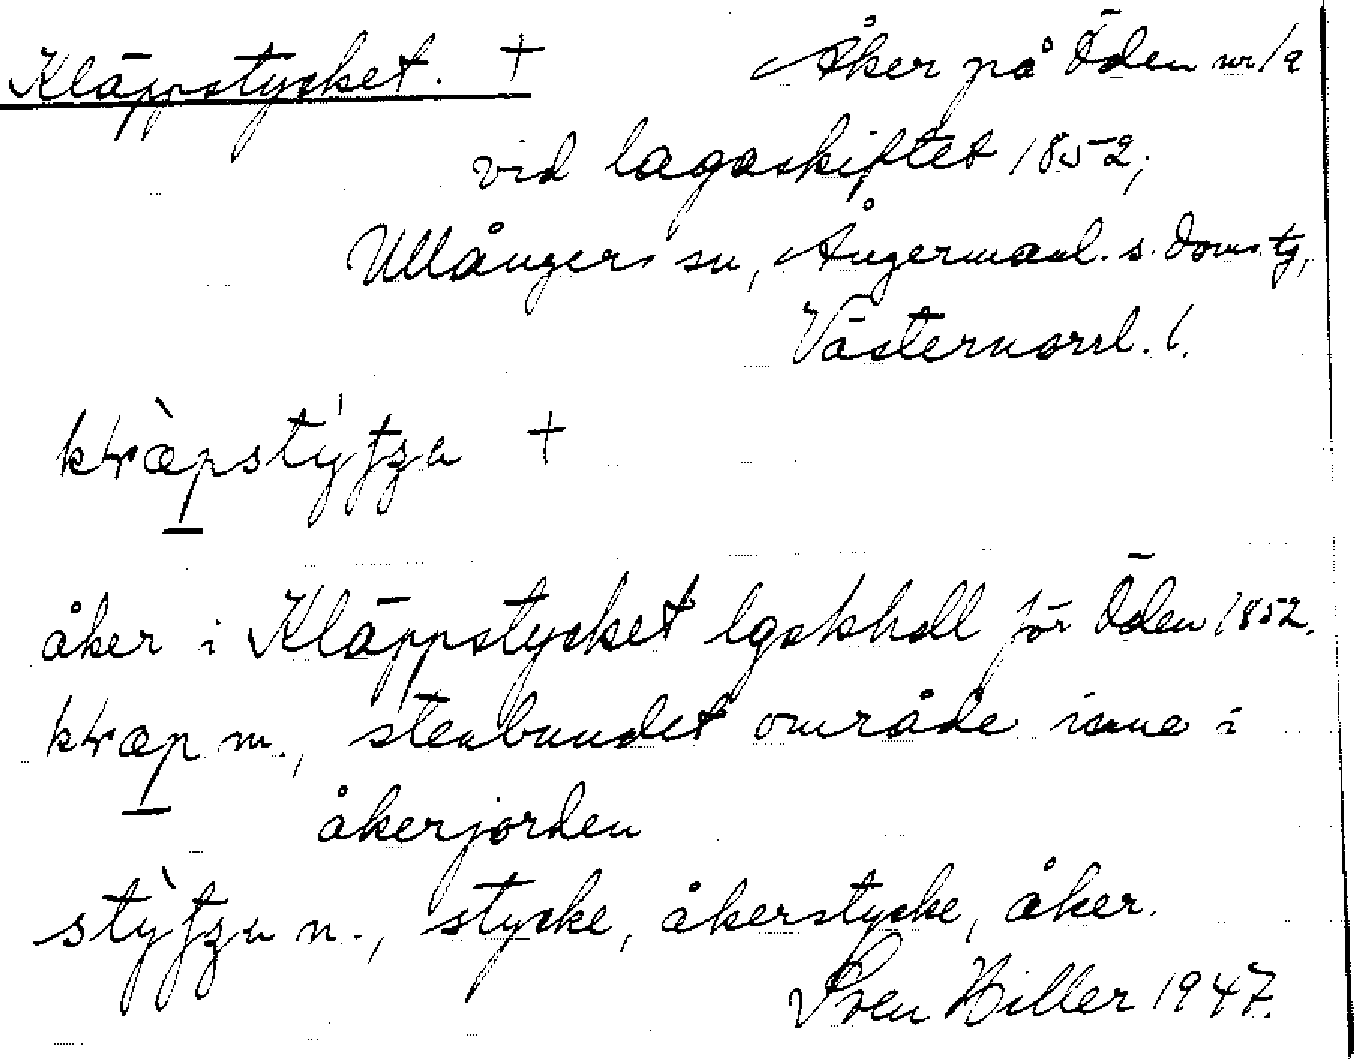 Kläppstycket. † Åker på Öden nr 1a
vid lagaskiftet 1852,
Ullångers sn, Ångermanl. s. doms tg,
Västernorrl. l.
†
åker i Kläppstycket lgskhdl för Öden 1852.
m., stenbundet område inne i
åkerjorden
n., stycke, åkerstycke, åker.
Sven Hiller 1947.